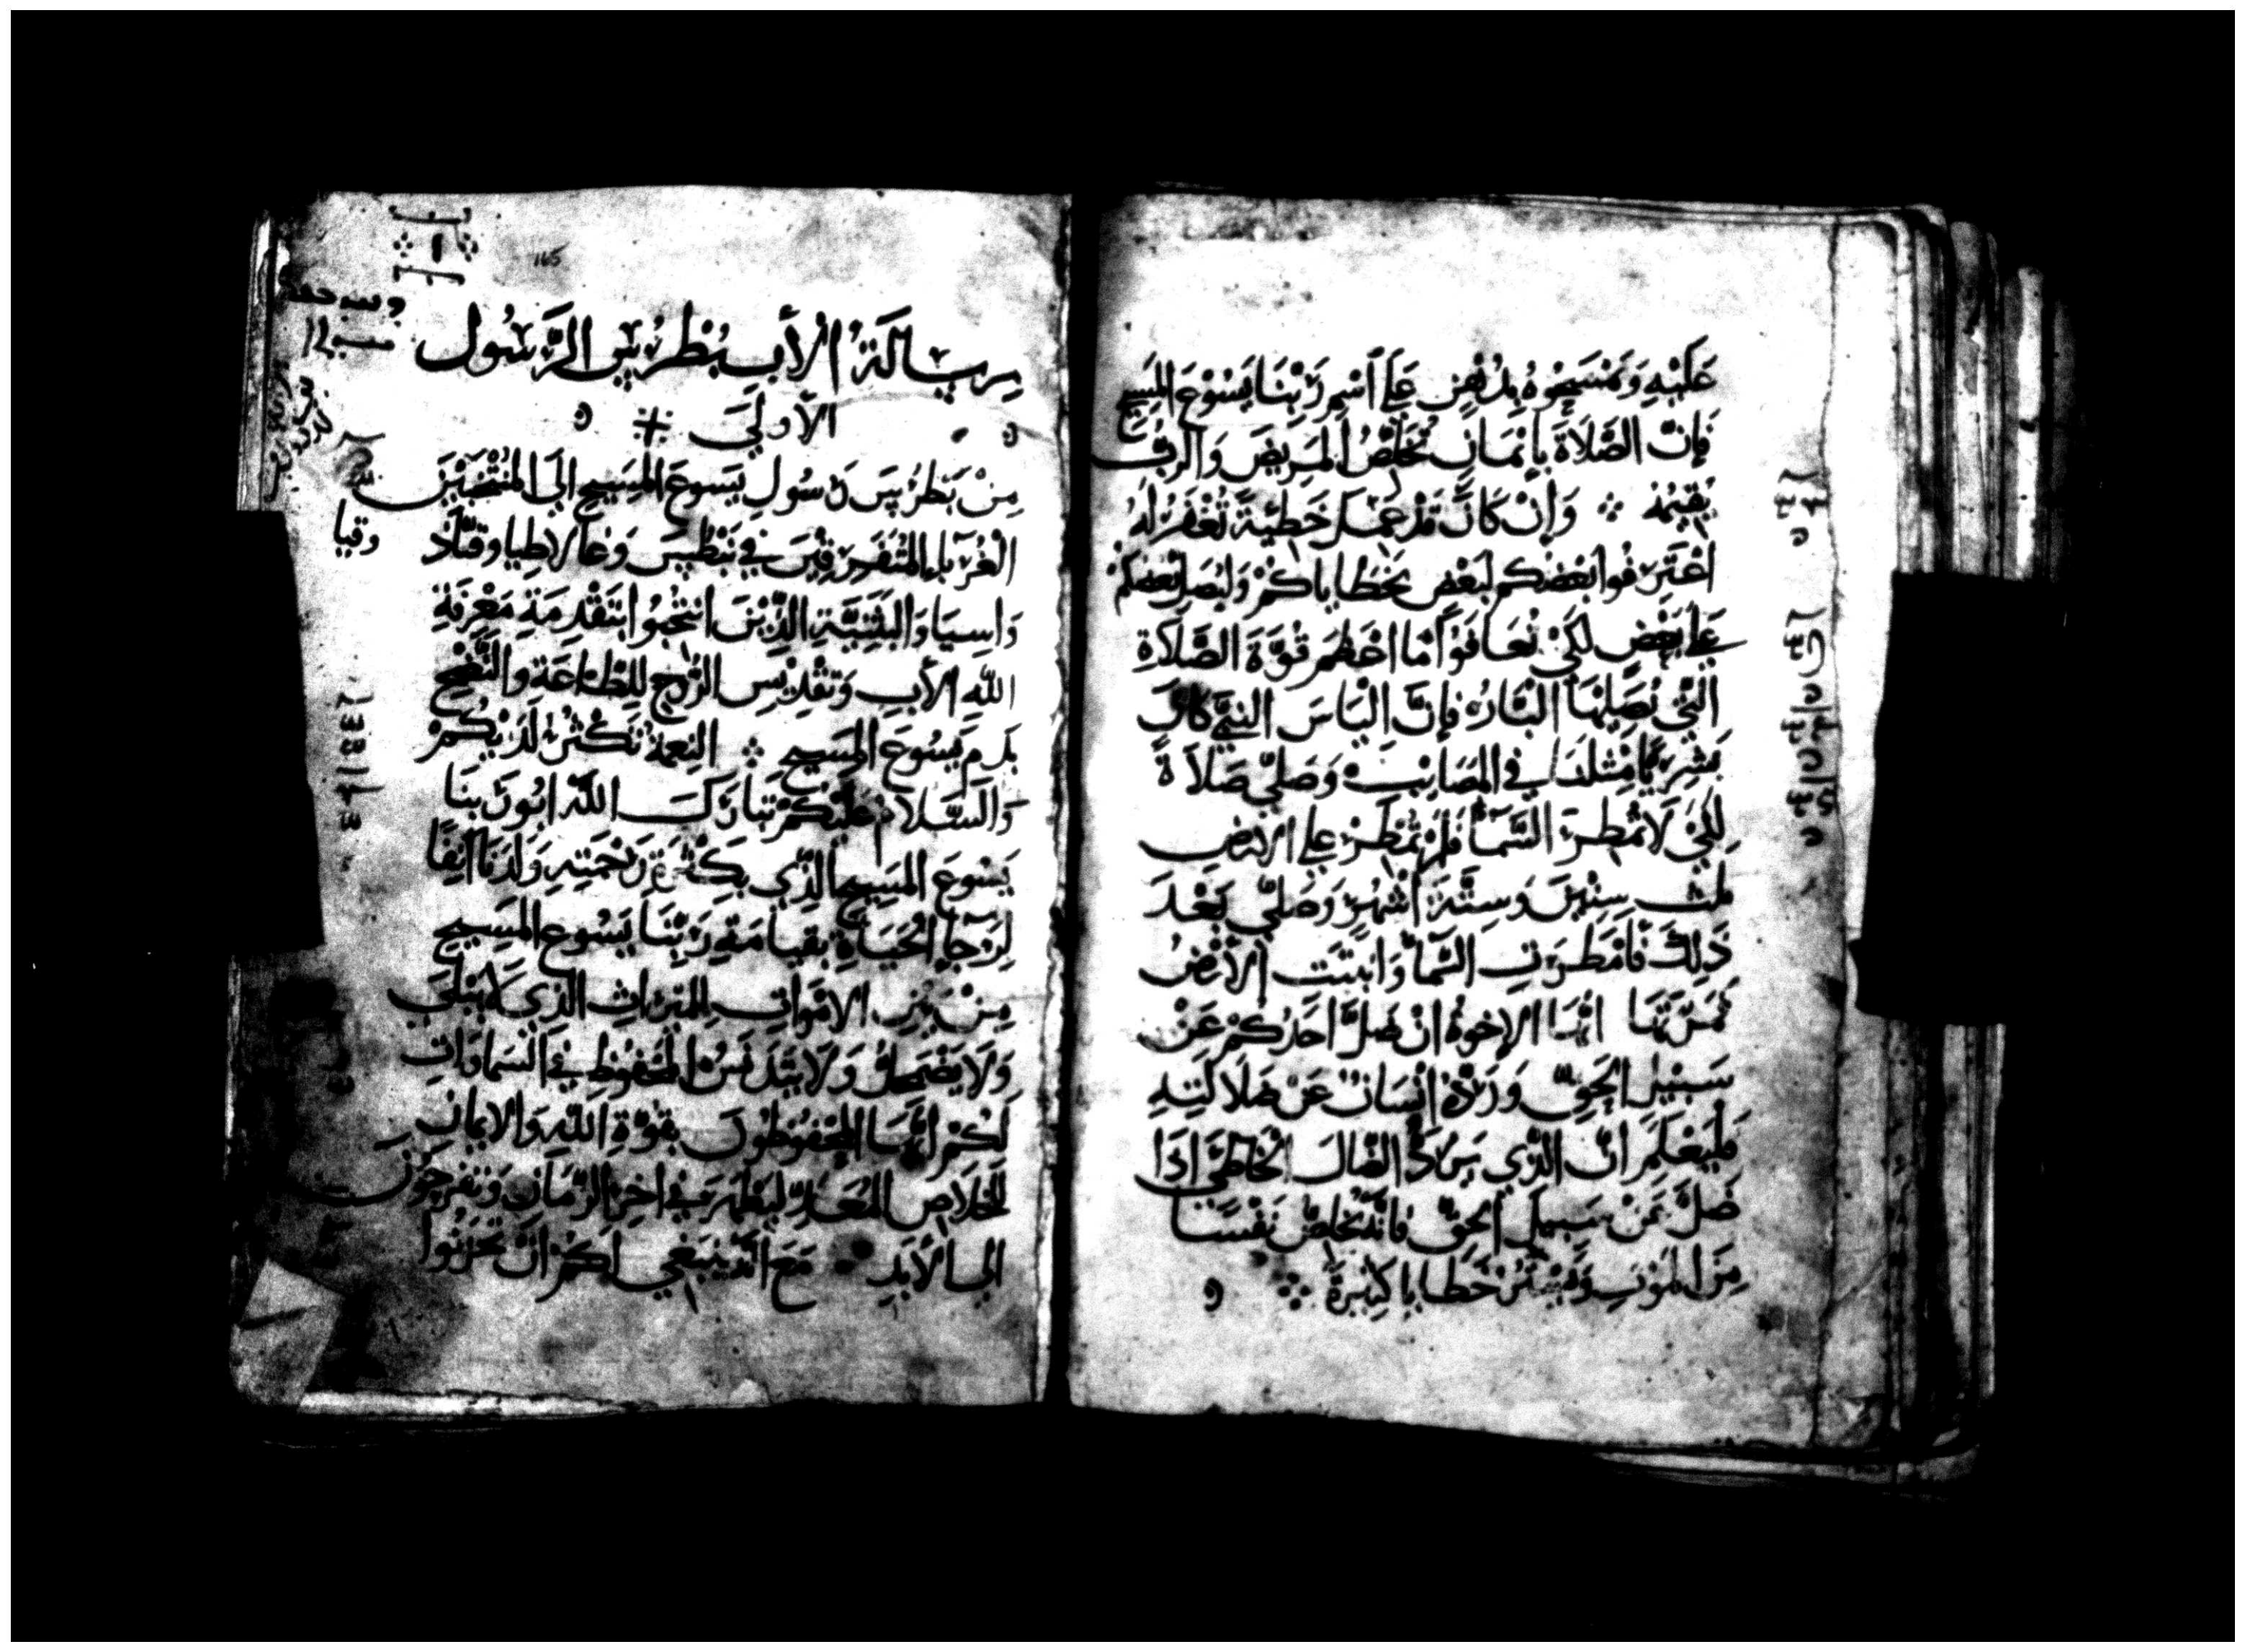 عَلَيْهِ وَيَمْسَحُوهُ بِدُهْنٍ عَلَي اسْمِ رَبِّنَا يَسُوعَ المَسِيحِ
فَإِنَّ الصَّلَاةَ بِإِيْمَانٍ تُخَلِّصُ المَرِيضَ وَالرَّبُّ
يُقِيمُهُ ⁘ وَإِنْ كَانَ قَدْ عَمِلَ خَطِيَةً تُغْفَرُ لَهُ
اعْتَرِفُوا بَعْضُكُم لِبَعْضٍ بِخَطَايَاكُمْ وَلْيُصَلِّ بَعْضُكُمْ
عَلَي بَعْضٍ لِكَيْ تُعَافَوْا مَا اعْظَمَ قُوَّةَ الصَّلَاةِ
الَّتِي يُصَلِّيْهَا البَّارُ فَإِنَّ الْيَاسَ النَّبِيَّ كَانَ
بَشَرِيًّا مِثْلَنَا فِي المَصَايِبِ وَصَلَّي صَلَاةً
لِكَيْ لَا تُمْطِرَ السَّمَآُ فَلَمْ تُمْطِرْ عَلِي الارْضِ
ثلث سِنِيْنَ وَسِتَّةَ اشْهُرٍ وَصَلَّي بَعْدَ
ذَلِكَ فَامْطَرَتِ السَّمَآُ وَانْبَتَتِ الأَرْضُ
ثَمَرَتَهَا ايُّهَا الإِخوَةُ انْ ضَلَّ احَدُكُمْ عَنْ
سَبِيْلِ الحَقِّ وَرَدَّهُ إِنْسَانٌ عَنْ ضَلَالَتِهِ
فَلْيَعْلَمَ انَّ الَّذِي يَرُدُّ الضَّالَ الخَاطِئَ اذَا
ضَلَّ عَنْ سَبِيلِ الحَقِّ فَانَّهُ يُخَلِّصُ نَفْسَهُ
مِنَ المَوْتِ وَيَسْتُرُ خَطَايَا كَثِيْرَةً ⁘
165
رِسَالَةُ الأَبِ بُطْرُسَ الرَّسُول
الأُولَيَ
مِنْ بَطْرُسَ رَسُولِ يَسُوعَ المَسِيحِ الَي المُنْتَخَبَيْنَ
الْغُرَبَاءِ المُتَفَرِّقِيْنَ فِي بَنْطُسَ وَغَالَاطِيا وقبّاد
وقيا
وَاسِيَا وَالبَثَنِيَّةِ الَّذِيْنَ انْتُخِبُوا بِتَقْدِمَةِ مَعْرِفَةِ
اللَّهِ الأَبِ وَتَقْدِيْسِ الرُّوحِ لِلطَّاعَةِ وَالنَّضْحِ
بِدَمِ يَسُوعَ المَسِيحِ ⁘ النِعمَةُ تَكْثُرُ لَدَيْكُمْ
وَالسَّلَامُ عَلَيْكُمْ تَبَارَكَ اللَّهُ ابُو رَبِّنَا
يَسُوعَ المَسِيحِ الَّذِي بِكَثْرَةِ رَحْمَتِهِ وَلَدَنَا انِفًا
لِرَجَآءِ الْحَيَاةِ بِقِيَامَةِ رَبِّنَا يَسُوعَ المَسِيحِ
مِنْ بَيْنِ الامْوَاتِ لِلمِيْرَاثِ الَّذِي لَا يَبْلَي
وَلَا يَضْمَحِلُّ وَلَا يَتَدَنَّسُ المَحْفُوظِ فِي السَّمَاوَاتِ
لَكُمْ ايُّهَا المَحْفُوظُونَ بِقُوَّةِ اللَّهِ وَالايمَانِ
لِلْخَلَاصِ المُعَدِّ لِيَظْهَرَ فِي اخِرِ الزَّمَانِ وَتَفْرَحُونَ
الي الأَبَدِ مَعَ انَّهُ يَنْبَغِي لَكُمْ انْ تَحْزَنُوا